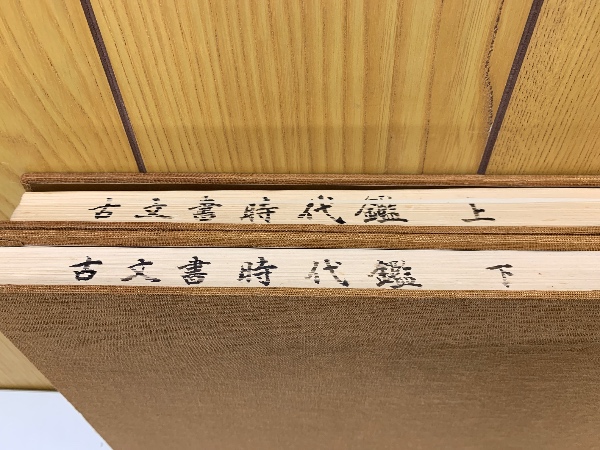 古文書時代鑑 上
古文書時代鑑 下